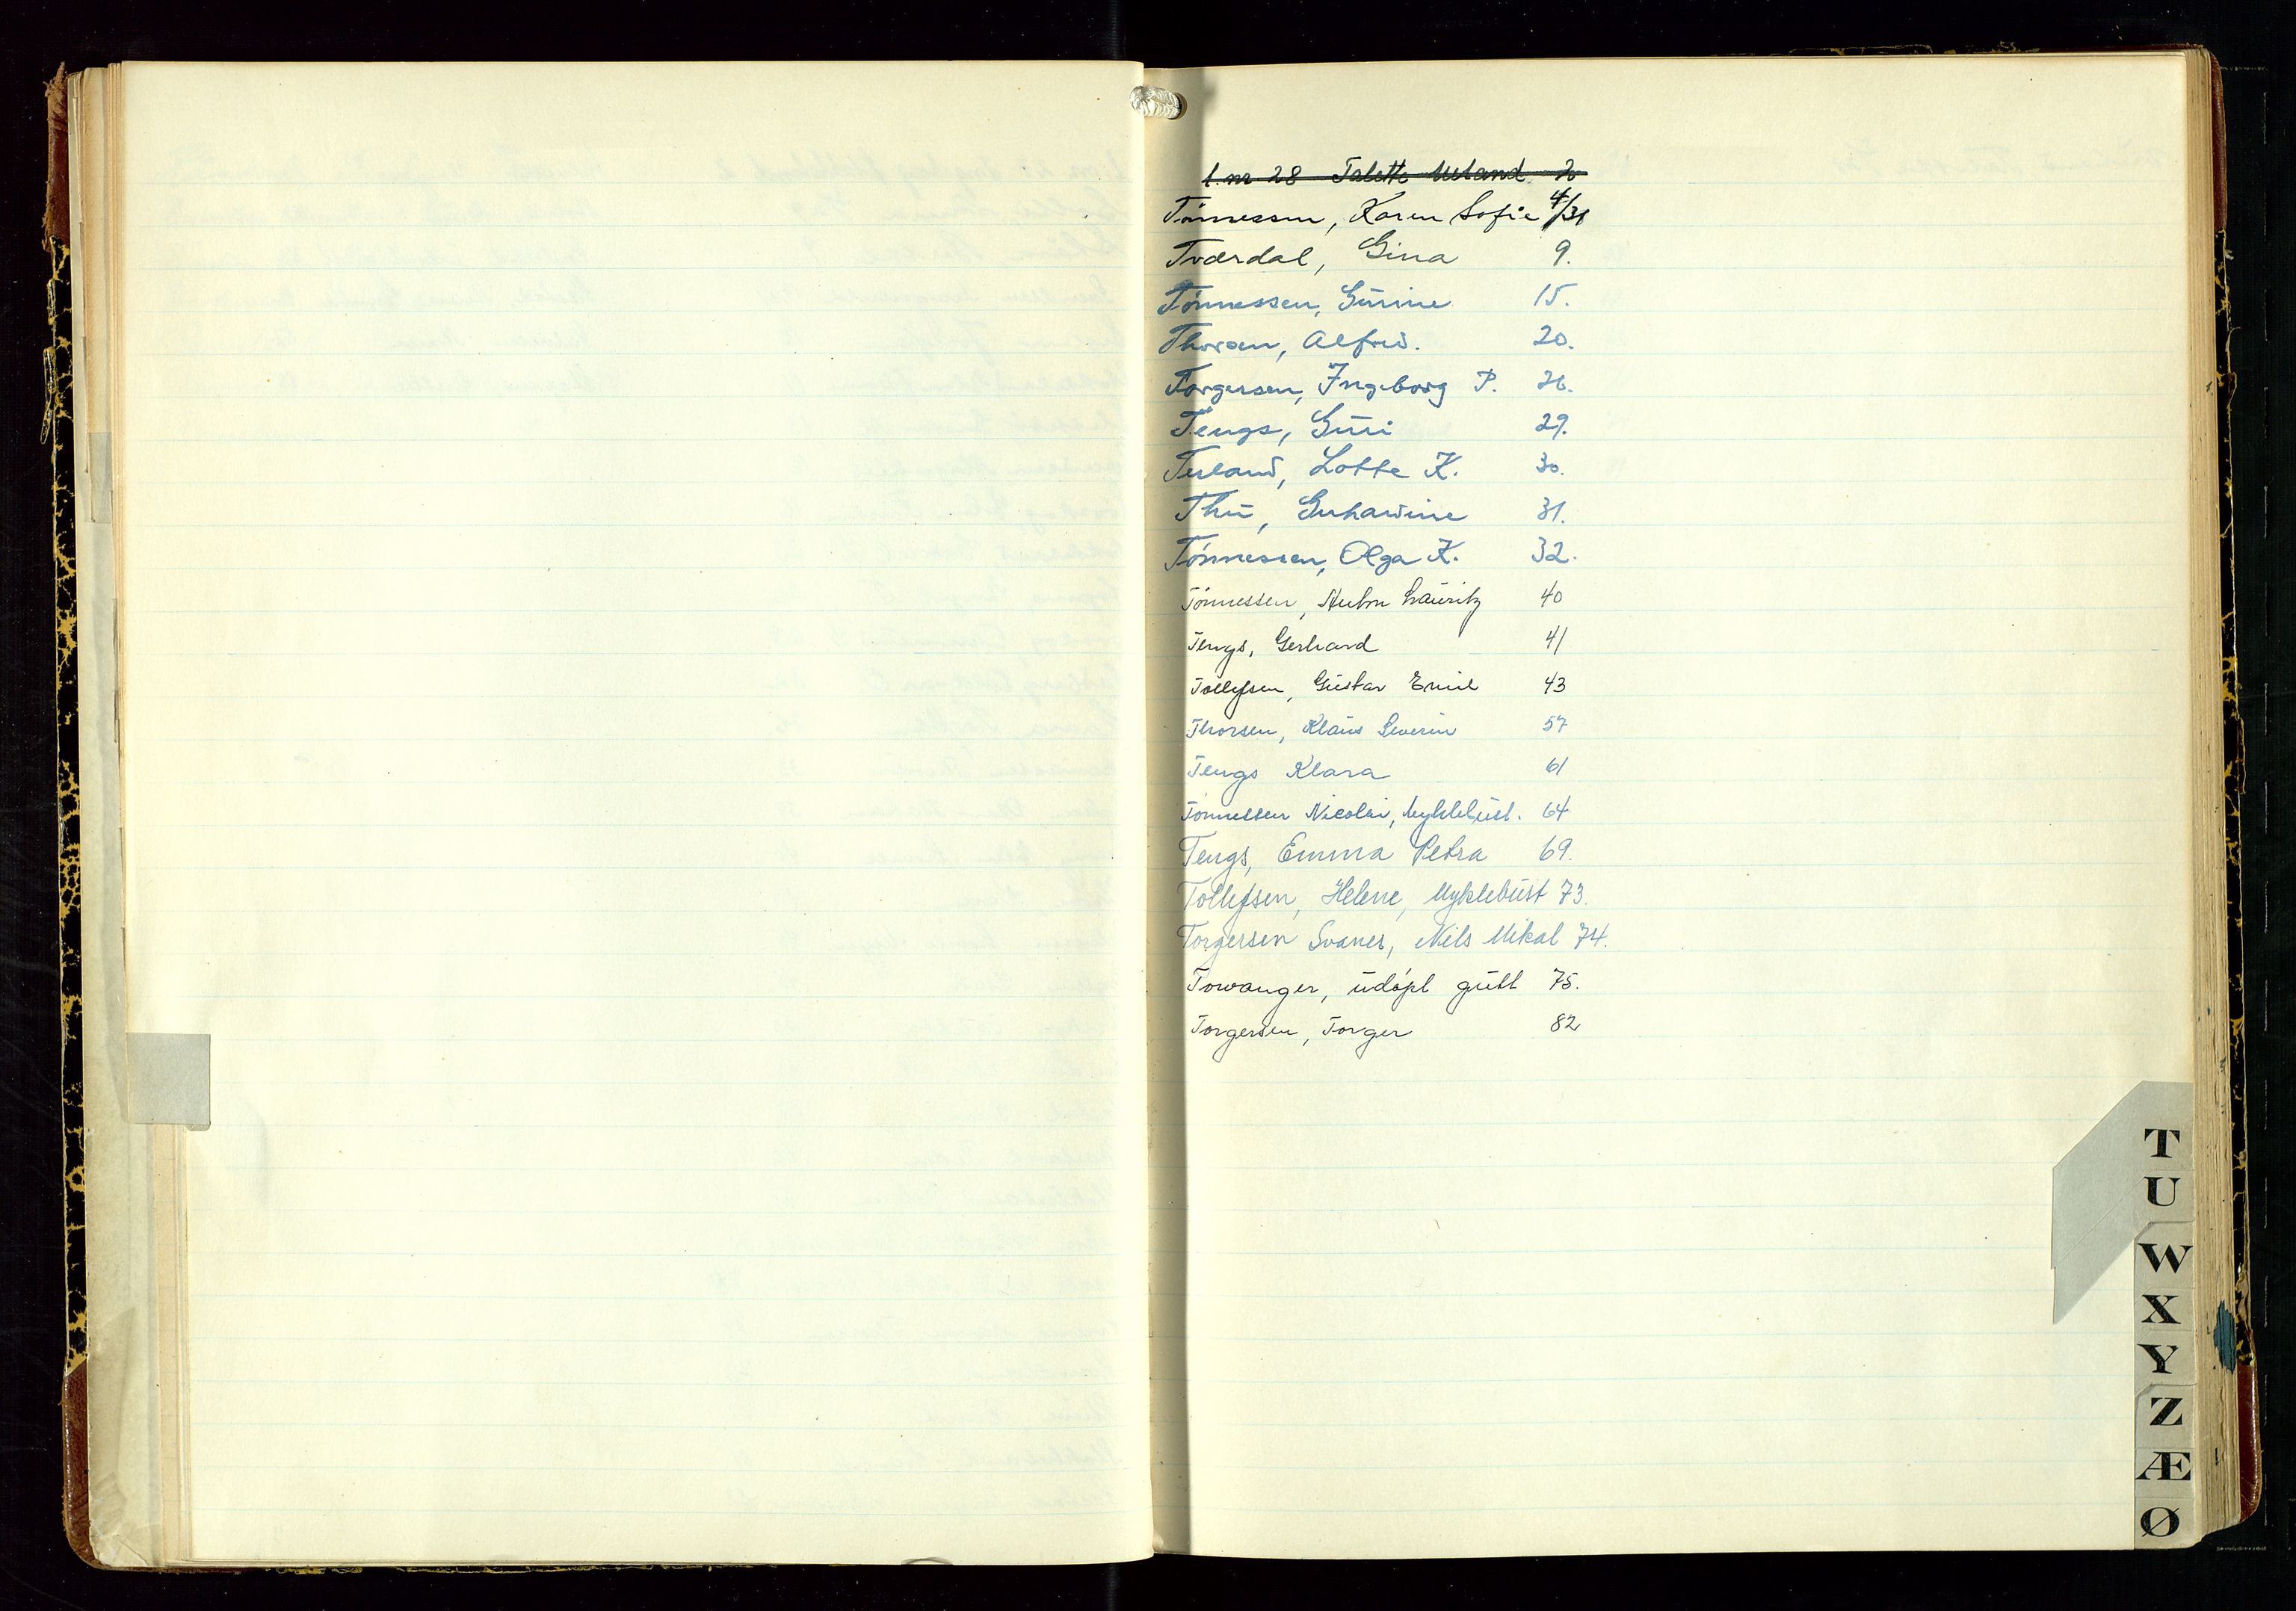 l. nr 28 Talette Ueland 2
Tönnessen, Karen Sofie 4/31
Tværdal, Gina 9.
Tönnessen, Gurine 15.
Thorsen, Alfred. 20.
Torgersen, Ingeborg P. 26.
Tengs, Guri 29.
Terland, Lotte K. 30.
Thu, Gerhardine 31.
Tönnessen, Olga K. 32.
Tönnessen, Lauritz 40
Tengs, Gerhard 41
Tollefsen, Gustav Emil 43
Thorsen, Klaus Severin 57
Tengs Klara 61
Tönnessen Nicolai, Myklebust. 64
Tengs, Emma Petra 69.
Tollefsen, Helene, Myklebust 73.
Torgersen Svanes, Nils Mikal 74.
Torvanger, udöpt gutt 75.
Torgersen, Torger 82
T
U
W
X
Y
Z
Æ
Ø